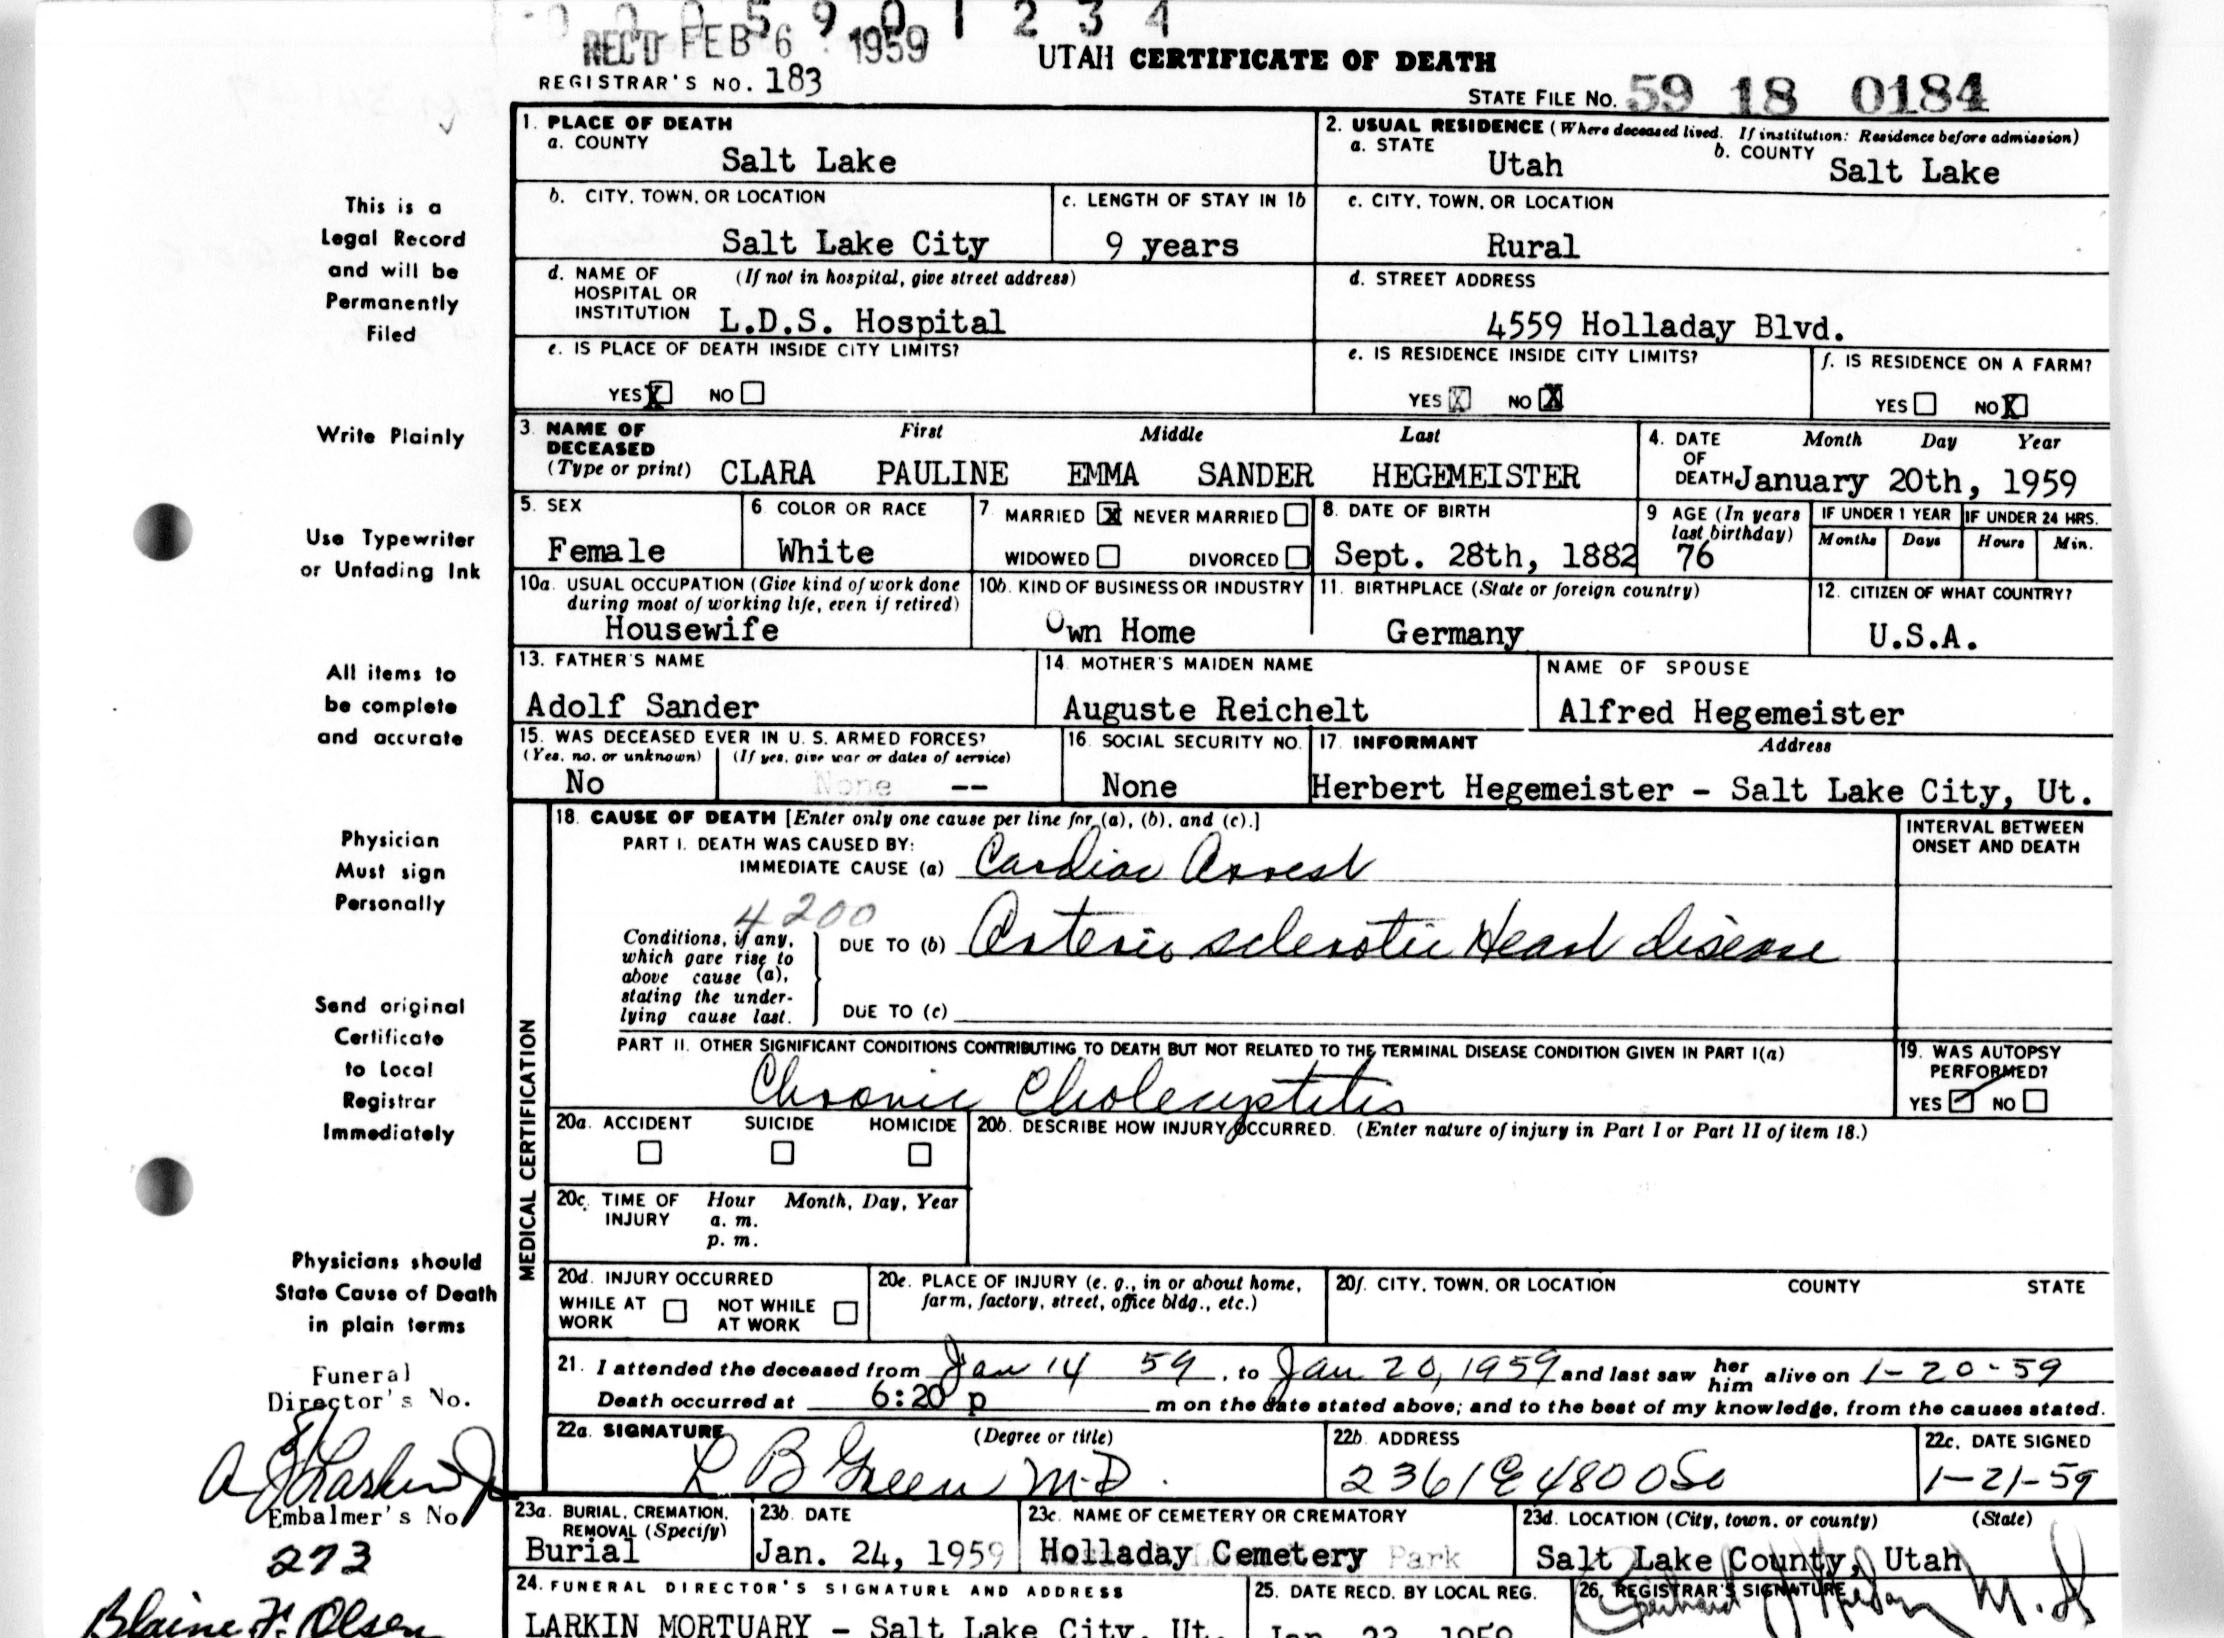 0 0 0 5 9 0 1 2 3 4
REC'D FEB 6 1959
UTAH CERTIFICATE OF DEATH
REGISTRAR'S NO. 183
STATE FILE NO. 59 18 0184
This is a
Legal Record
and will be
Permanently
Filed
Write Plainly
Use Typewriter
or Unfading Ink
All items to
be complete
and accurate
Physician
Must sign
Personally
Send original
Certificate
to Local
Registrar
Immediately
Physicians should
State Cause of Death
in plain terms
Funeral
Director's No.
Embalmer's No.
273
Blaine F. Olsen
1. PLACE OF DEATH
a. COUNTY
Salt Lake
2. USUAL RESIDENCE (Where deceased lived. If institution: Residence before admission)
a. STATE Utah b. COUNTY Salt Lake
b. CITY, TOWN, OR LOCATION
Salt Lake City
c. LENGTH OF STAY IN 1b
9 years
c. CITY, TOWN, OR LOCATION
Rural
d. NAME OF (If not in hospital, give street address)
HOSPITAL OR
INSTITUTION L.D.S. Hospital
d. STREET ADDRESS
4559 Holladay Blvd.
e. IS PLACE OF DEATH INSIDE CITY LIMITS?
YES X NO
e. IS RESIDENCE INSIDE CITY LIMITS?
YES X NO X
f. IS RESIDENCE ON A FARM?
YES NO X
3. NAME OF DECEASED (Type or print) First Middle Last
CLARA PAULINE EMMA SANDER HEGEMEISTER
4. DATE OF DEATH Month Day Year
January 20th, 1959
5. SEX
Female
6 COLOR OR RACE
White
7 MARRIED X NEVER MARRIED
WIDOWED DIVORCED
8. DATE OF BIRTH
Sept. 28th, 1882
9 AGE (In years last birthday)
76
IF UNDER 1 YEAR IF UNDER 24 HRS.
Months Days Hours Min.
10a. USUAL OCCUPATION (Give kind of work done
during most of working life, even if retired)
Housewife
10b. KIND OF BUSINESS OR INDUSTRY
Own Home
11. BIRTHPLACE (State or foreign country)
Germany
12. CITIZEN OF WHAT COUNTRY?
U.S.A.
13. FATHER'S NAME
Adolf Sander
14 MOTHER'S MAIDEN NAME
Auguste Reichelt
NAME OF SPOUSE
Alfred Hegemeister
15. WAS DECEASED EVER IN U. S. ARMED FORCES?
(Yes, no, or unknown) (If yes, give war or dates of service)
No None --
16. SOCIAL SECURITY NO.
None
17. INFORMANT Address
Herbert Hegemeister - Salt Lake City, Ut.
MEDICAL CERTIFICATION
18. CAUSE OF DEATH [Enter only one cause per line for (a), (b), and (c).]
PART I. DEATH WAS CAUSED BY:
IMMEDIATE CAUSE (a) Cardiac Arrest
INTERVAL BETWEEN
ONSET AND DEATH
4200
Conditions, if any,
which gave rise to
above cause (a),
stating the under-
lying cause last.
DUE TO (b) Arterio sclerotic Heart disease
DUE TO (c)
PART II. OTHER SIGNIFICANT CONDITIONS CONTRIBUTING TO DEATH BUT NOT RELATED TO THE TERMINAL DISEASE CONDITION GIVEN IN PART I(a)
Chronic Cholecystitis
19. WAS AUTOPSY
PERFORMED?
YES ✓ NO
20a. ACCIDENT SUICIDE HOMICIDE
20b. DESCRIBE HOW INJURY OCCURRED. (Enter nature of injury in Part I or Part II of item 18.)
20c. TIME OF INJURY Hour Month, Day, Year
a. m.
p. m.
20d. INJURY OCCURRED
WHILE AT WORK NOT WHILE AT WORK
20e. PLACE OF INJURY (e. g., in or about home,
farm, factory, street, office bldg., etc.)
20f. CITY, TOWN, OR LOCATION COUNTY STATE
21. I attended the deceased from Jan 14 59, to Jan 20, 1959 and last saw her him alive on 1-20-59
Death occurred at 6:20 p m on the date stated above; and to the best of my knowledge, from the causes stated.
22a. SIGNATURE (Degree or title)
L B Green M.D.
22b. ADDRESS
2361 E 4800 So
22c. DATE SIGNED
1-21-59
23a. BURIAL, CREMATION,
REMOVAL (Specify)
Burial
23b. DATE
Jan. 24, 1959
23c. NAME OF CEMETERY OR CREMATORY
Holladay Cemetery Park
23d. LOCATION (City, town, or county) (State)
Salt Lake County, Utah
24. FUNERAL DIRECTOR'S SIGNATURE AND ADDRESS
LARKIN MORTUARY - Salt Lake City, Ut.
25. DATE RECD. BY LOCAL REG.
Jan. 23, 1959
26. REGISTRAR'S SIGNATURE